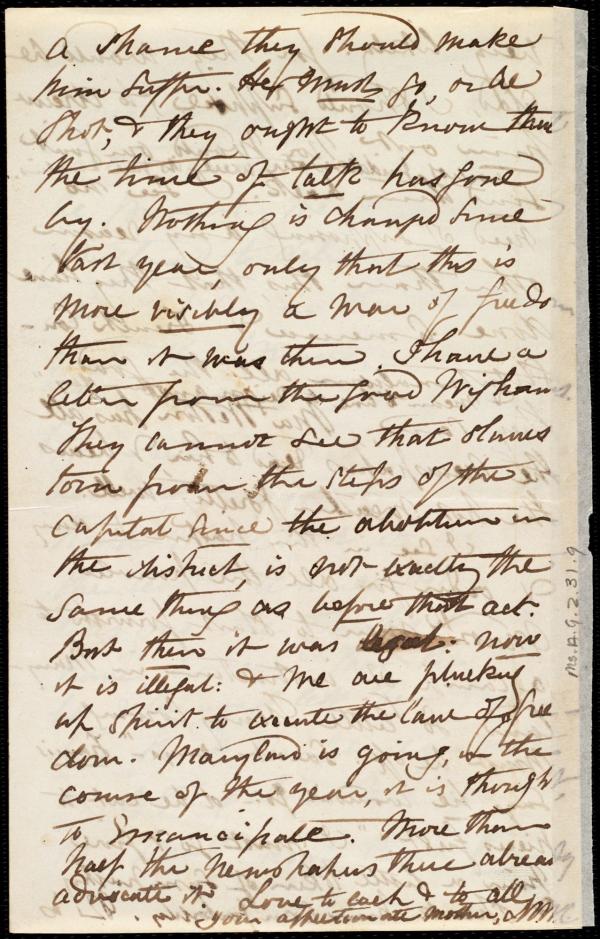 a shame they should make
him suffer. He must go, or be
shot, & they ought to know that
the time of talk has gone
by. Nothing is changed since
last year, only that this is
more visibly a war of freedo
than it was then. I have a
letter from the good Wighams.
They cannot see that slaves
torn from the steps of the
Capitol since the abolition in
the district, is not exactly the
same thing as before that act.
But then it was legal: now
it is illegal: & we are plucking
up spirit to execute the law of free
dom. Maryland is going, in the
course of the year, it is thought
to Emancipate. More than
half the newspapers there already
advocate it. Love to each & to all
your affectionate mother, M.W.C.
Ms.A.9.2.31.9